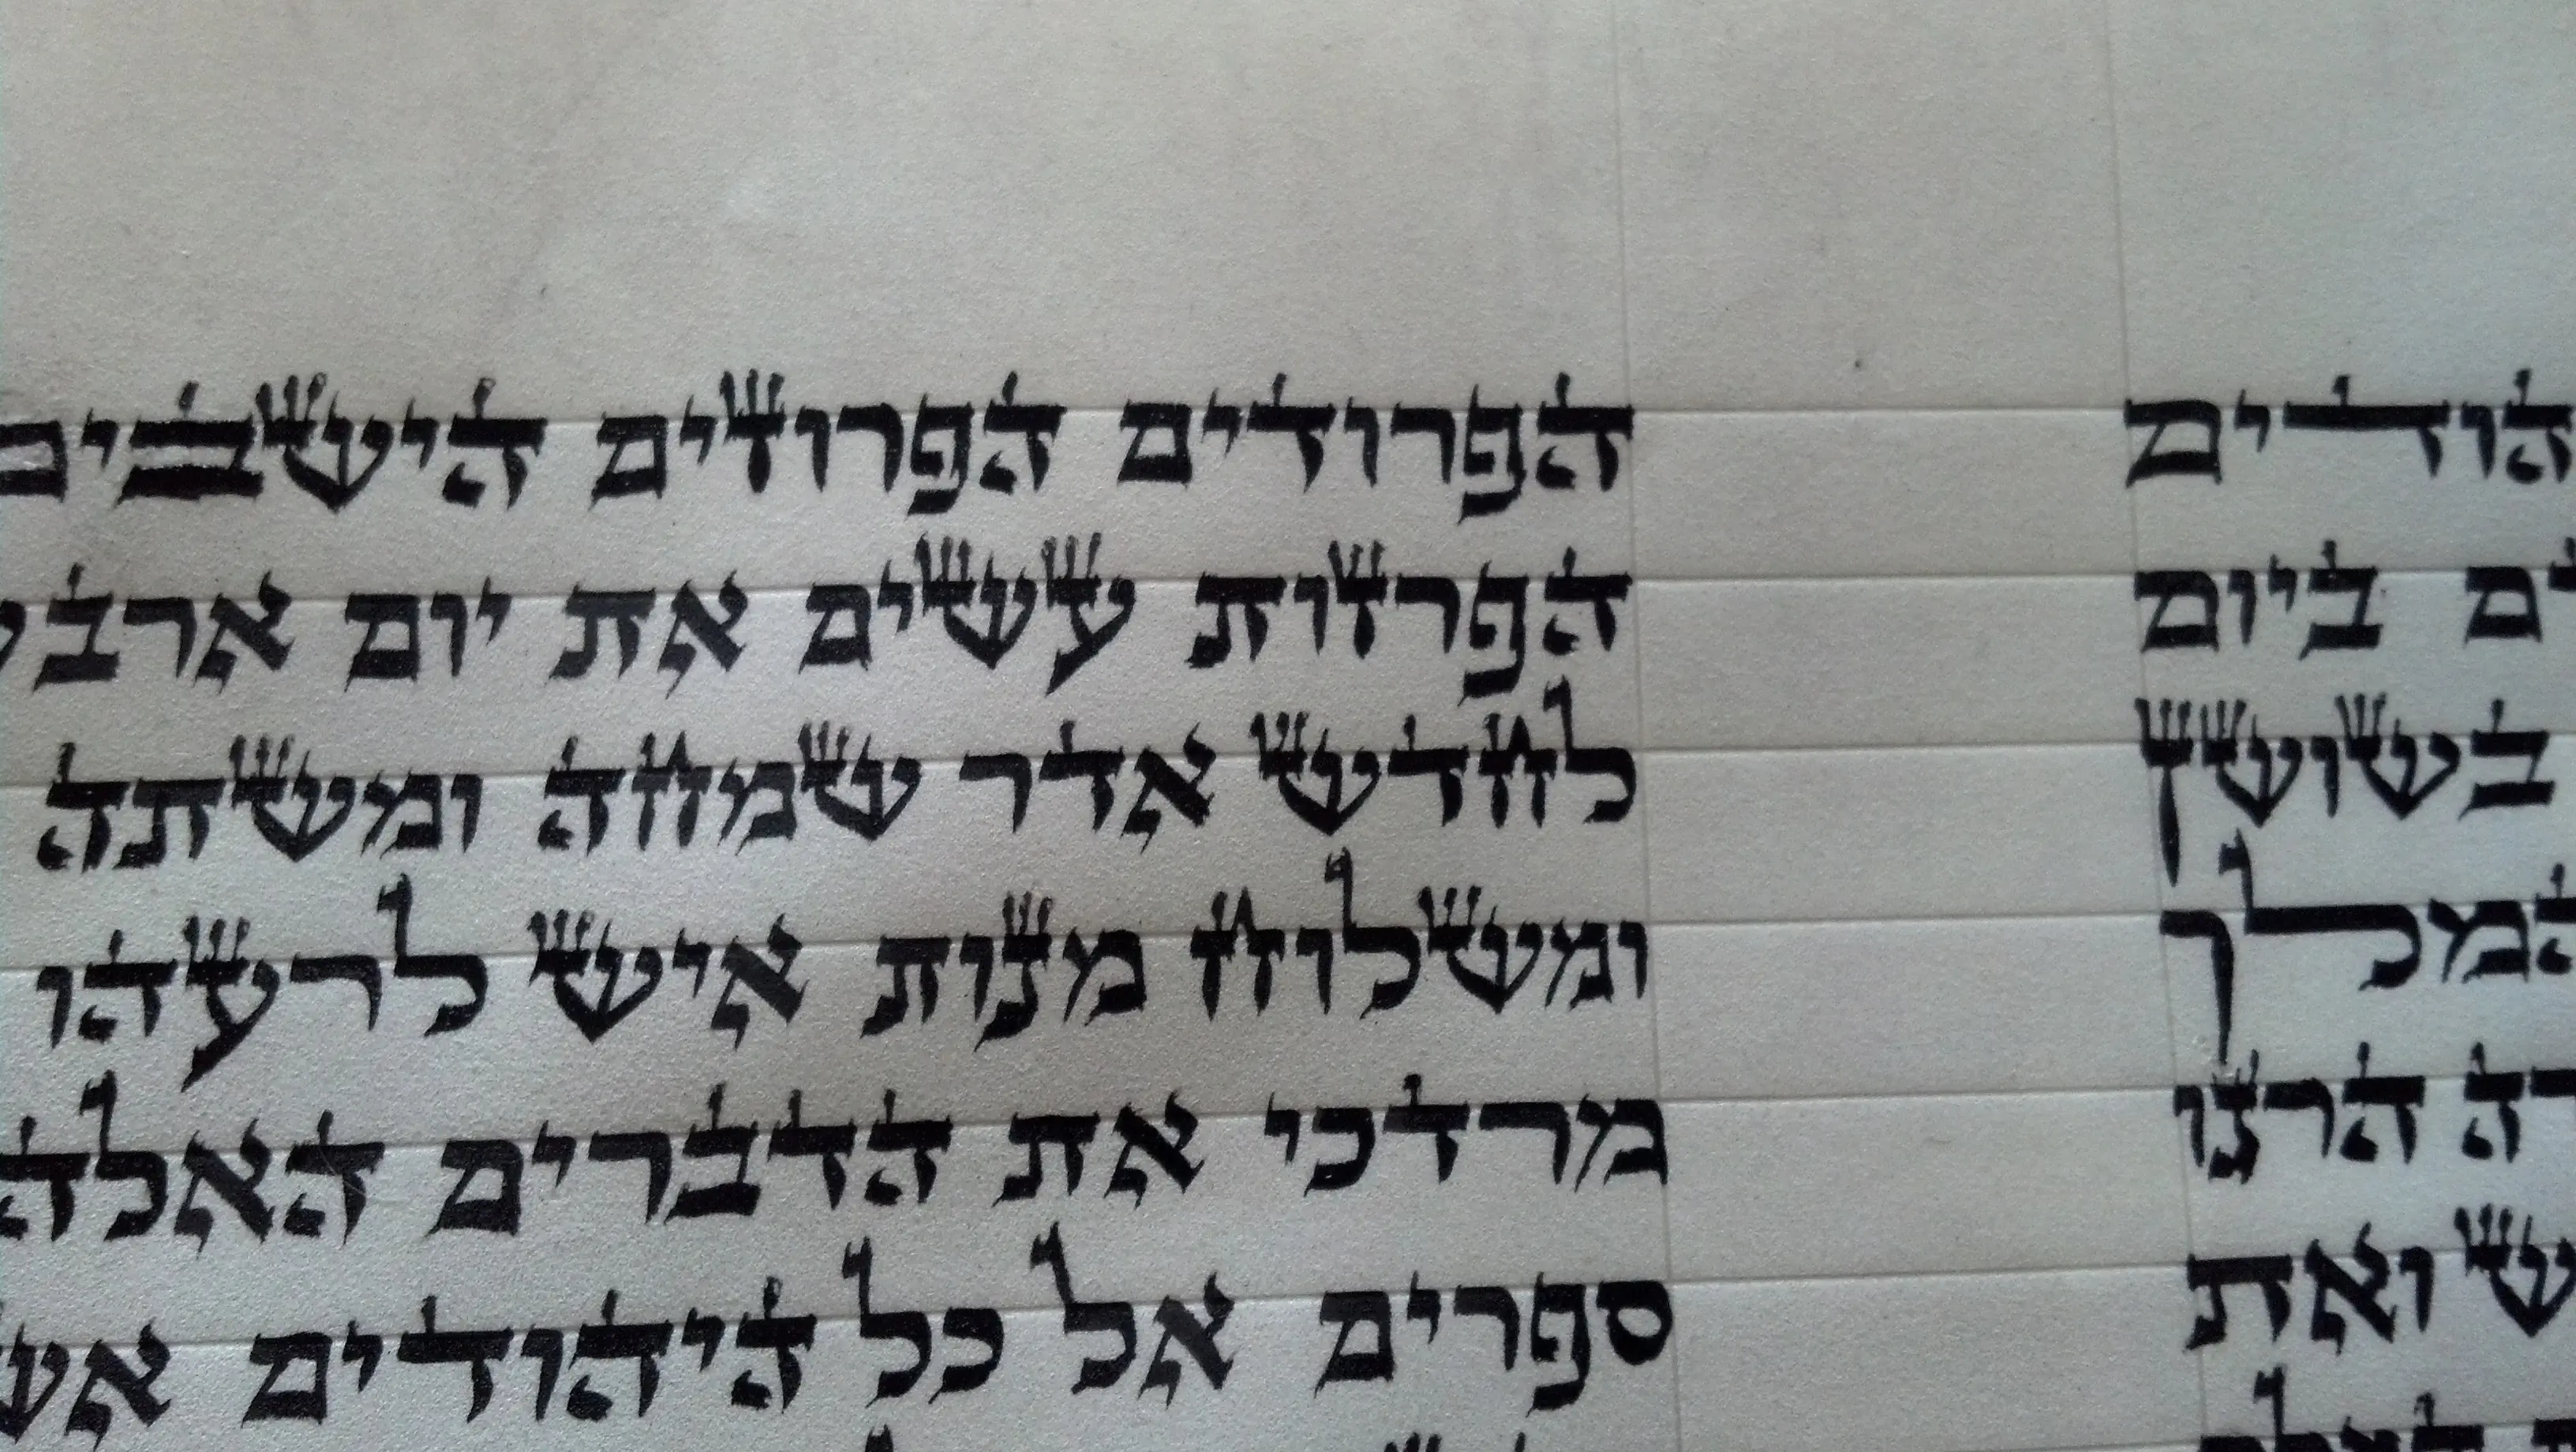 הודים
ביום
בשושן
המלך
הרגו
ואת
הפרודים הפרוזים הישבים
הפרזות עשים את יום ארב
לחדש אדר שמחה ומשתה
ומשלוח מנות איש לרעהו
מרדכי את הדברים האלה
ספרים אל כל היהודים אש